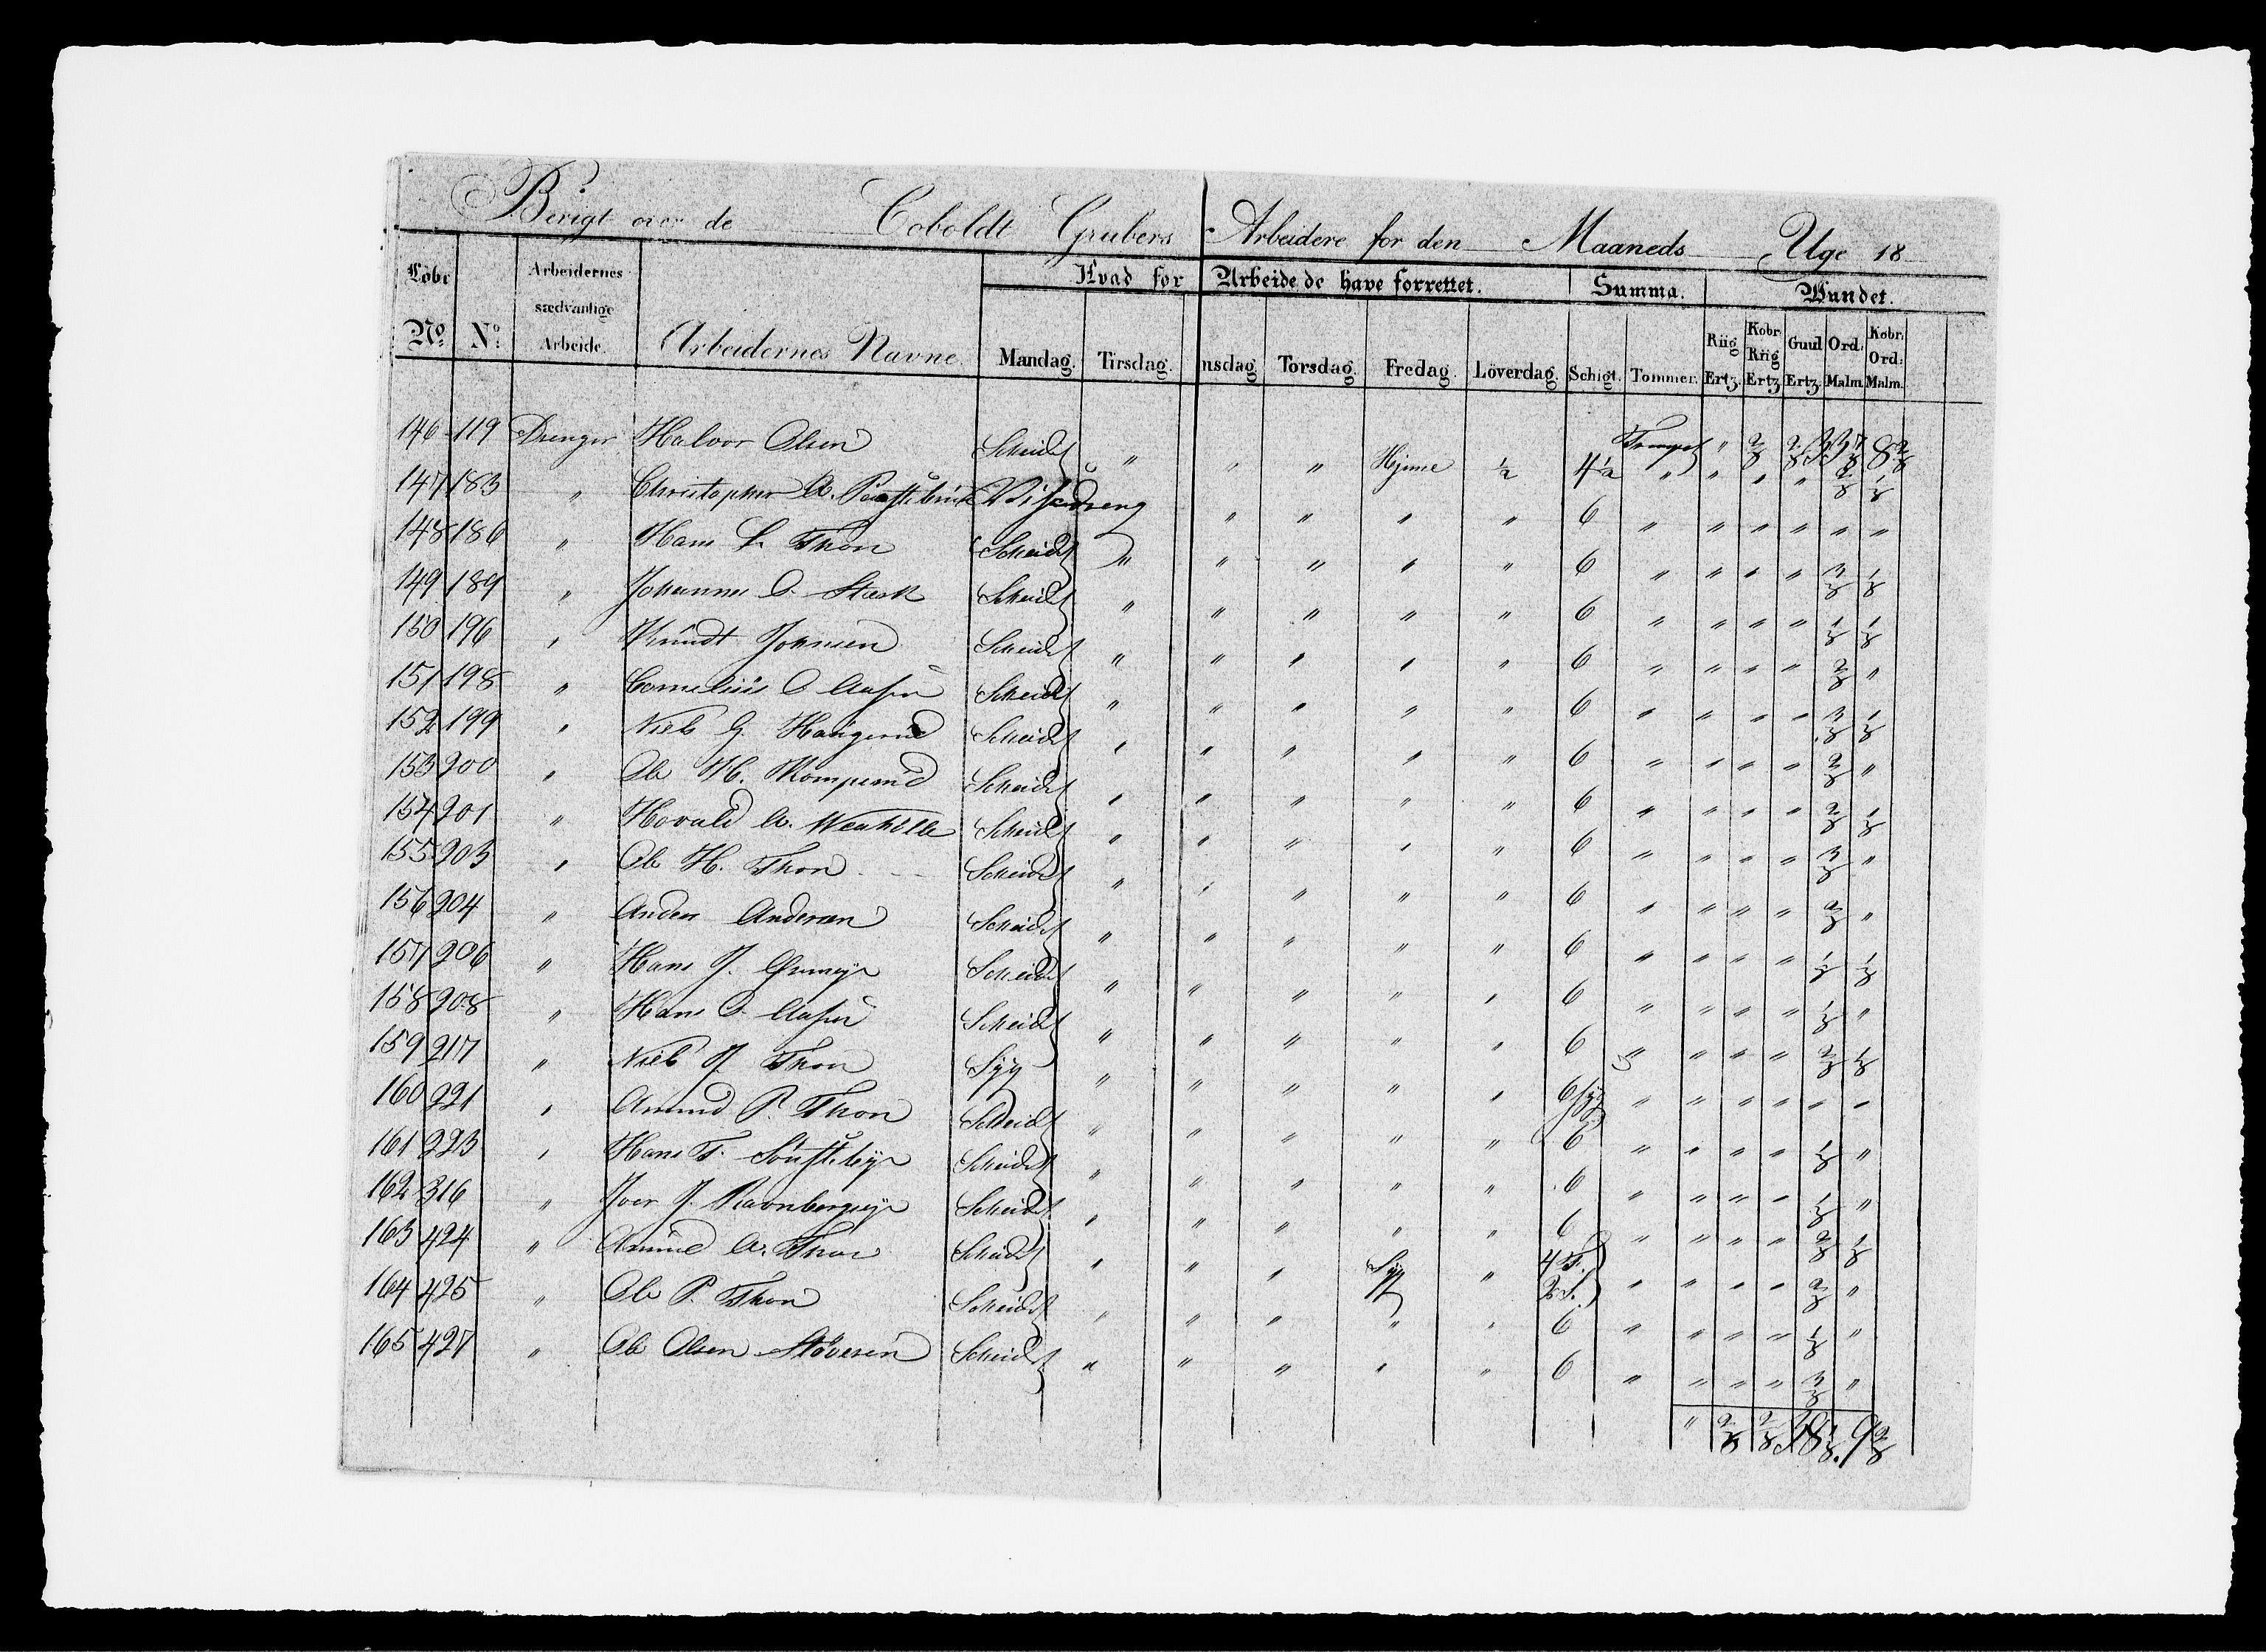 Berigt over de Coboldt Grubers Arbeidere for den Maaneds Uge 18
Löbe No. No. Arbeidernes sædvanlige Arbeide. Arbeidernes Navne. Hvad for Arbeide de have forrettet. Summa. Vundet.
Mandag. Tirsdag. nsdag. Torsdag. Fredag. Löverdag. Schigt. Tommer. Riig Ertz. Kobr. Riig Ertz Guul Ertz. Ord. Malm. Kobr. Ord: Malm.
146 119 Drenger Halvor Olsen Scheidt " " " Hjeme ½ 4½ " 2/8 2/8 8 2/8
147 183 " Christopher A. " " " " 6 " " " " " "
148 186 " Hans L. Thon Scheidt " " " " " 6 " " " " 3/8 1/8
149 189 " Johannes O. Stærk Scheidt " " " " " 6 " " " " 1/8 1/8
150 196 " Knudt Johnsen Scheidt " " " " " 6 " " " " 2/8 "
151 198 " Cornelius O. Scheidt " " " " " 6 " " " " 3/8 1/8
152 199 " Niels G. Haugerud Scheidt " " " " " 6 " " " " 2/8 "
153 200 " Ole H. Komperud Scheidt " " " " " 6 " " " " 2/8 1/8
154 201 " Hovald A. Scheidt " " " " " 6 " " " " 3/8 "
155 203 " Ole H. Thon Scheidt " " " " " 6 " " " " 2/8 "
156 204 " Anders Andersen Scheidt " " " " " 6 " " " " 1/8 1/8
157 206 " Hans J. Scheidt " " " " " 6 " " " " 1/8 "
158 208 " Hans O. Scheidt " " " " " 6 " " " " 2/8 1/8
159 217 " Niels J. Thon Syg " " " " " 6 syg " " " " " "
160 221 " Amund P. Thon Scheidt " " " " " 6 " " " " 1/8 "
161 223 " Hans T. Scheidt " " " " " 6 " " " " 1/8 "
162 316 " Iver J. Ravnbergeije Scheidt " " " " " 6 " " " " 2/8 1/8
163 424 " Amund A. Thon Scheidt " " " Syg " 4 F. 2 S. " " " " 2/8 "
164 425 " Ole P. Thon Scheidt " " " " " 6 " " " " 1/8 "
165 427 " Ole Olsen Støveren Scheidt " " " " " 6 " " " " 3/8 "
" 2/8 2/8 38 1/8. 9 2/8